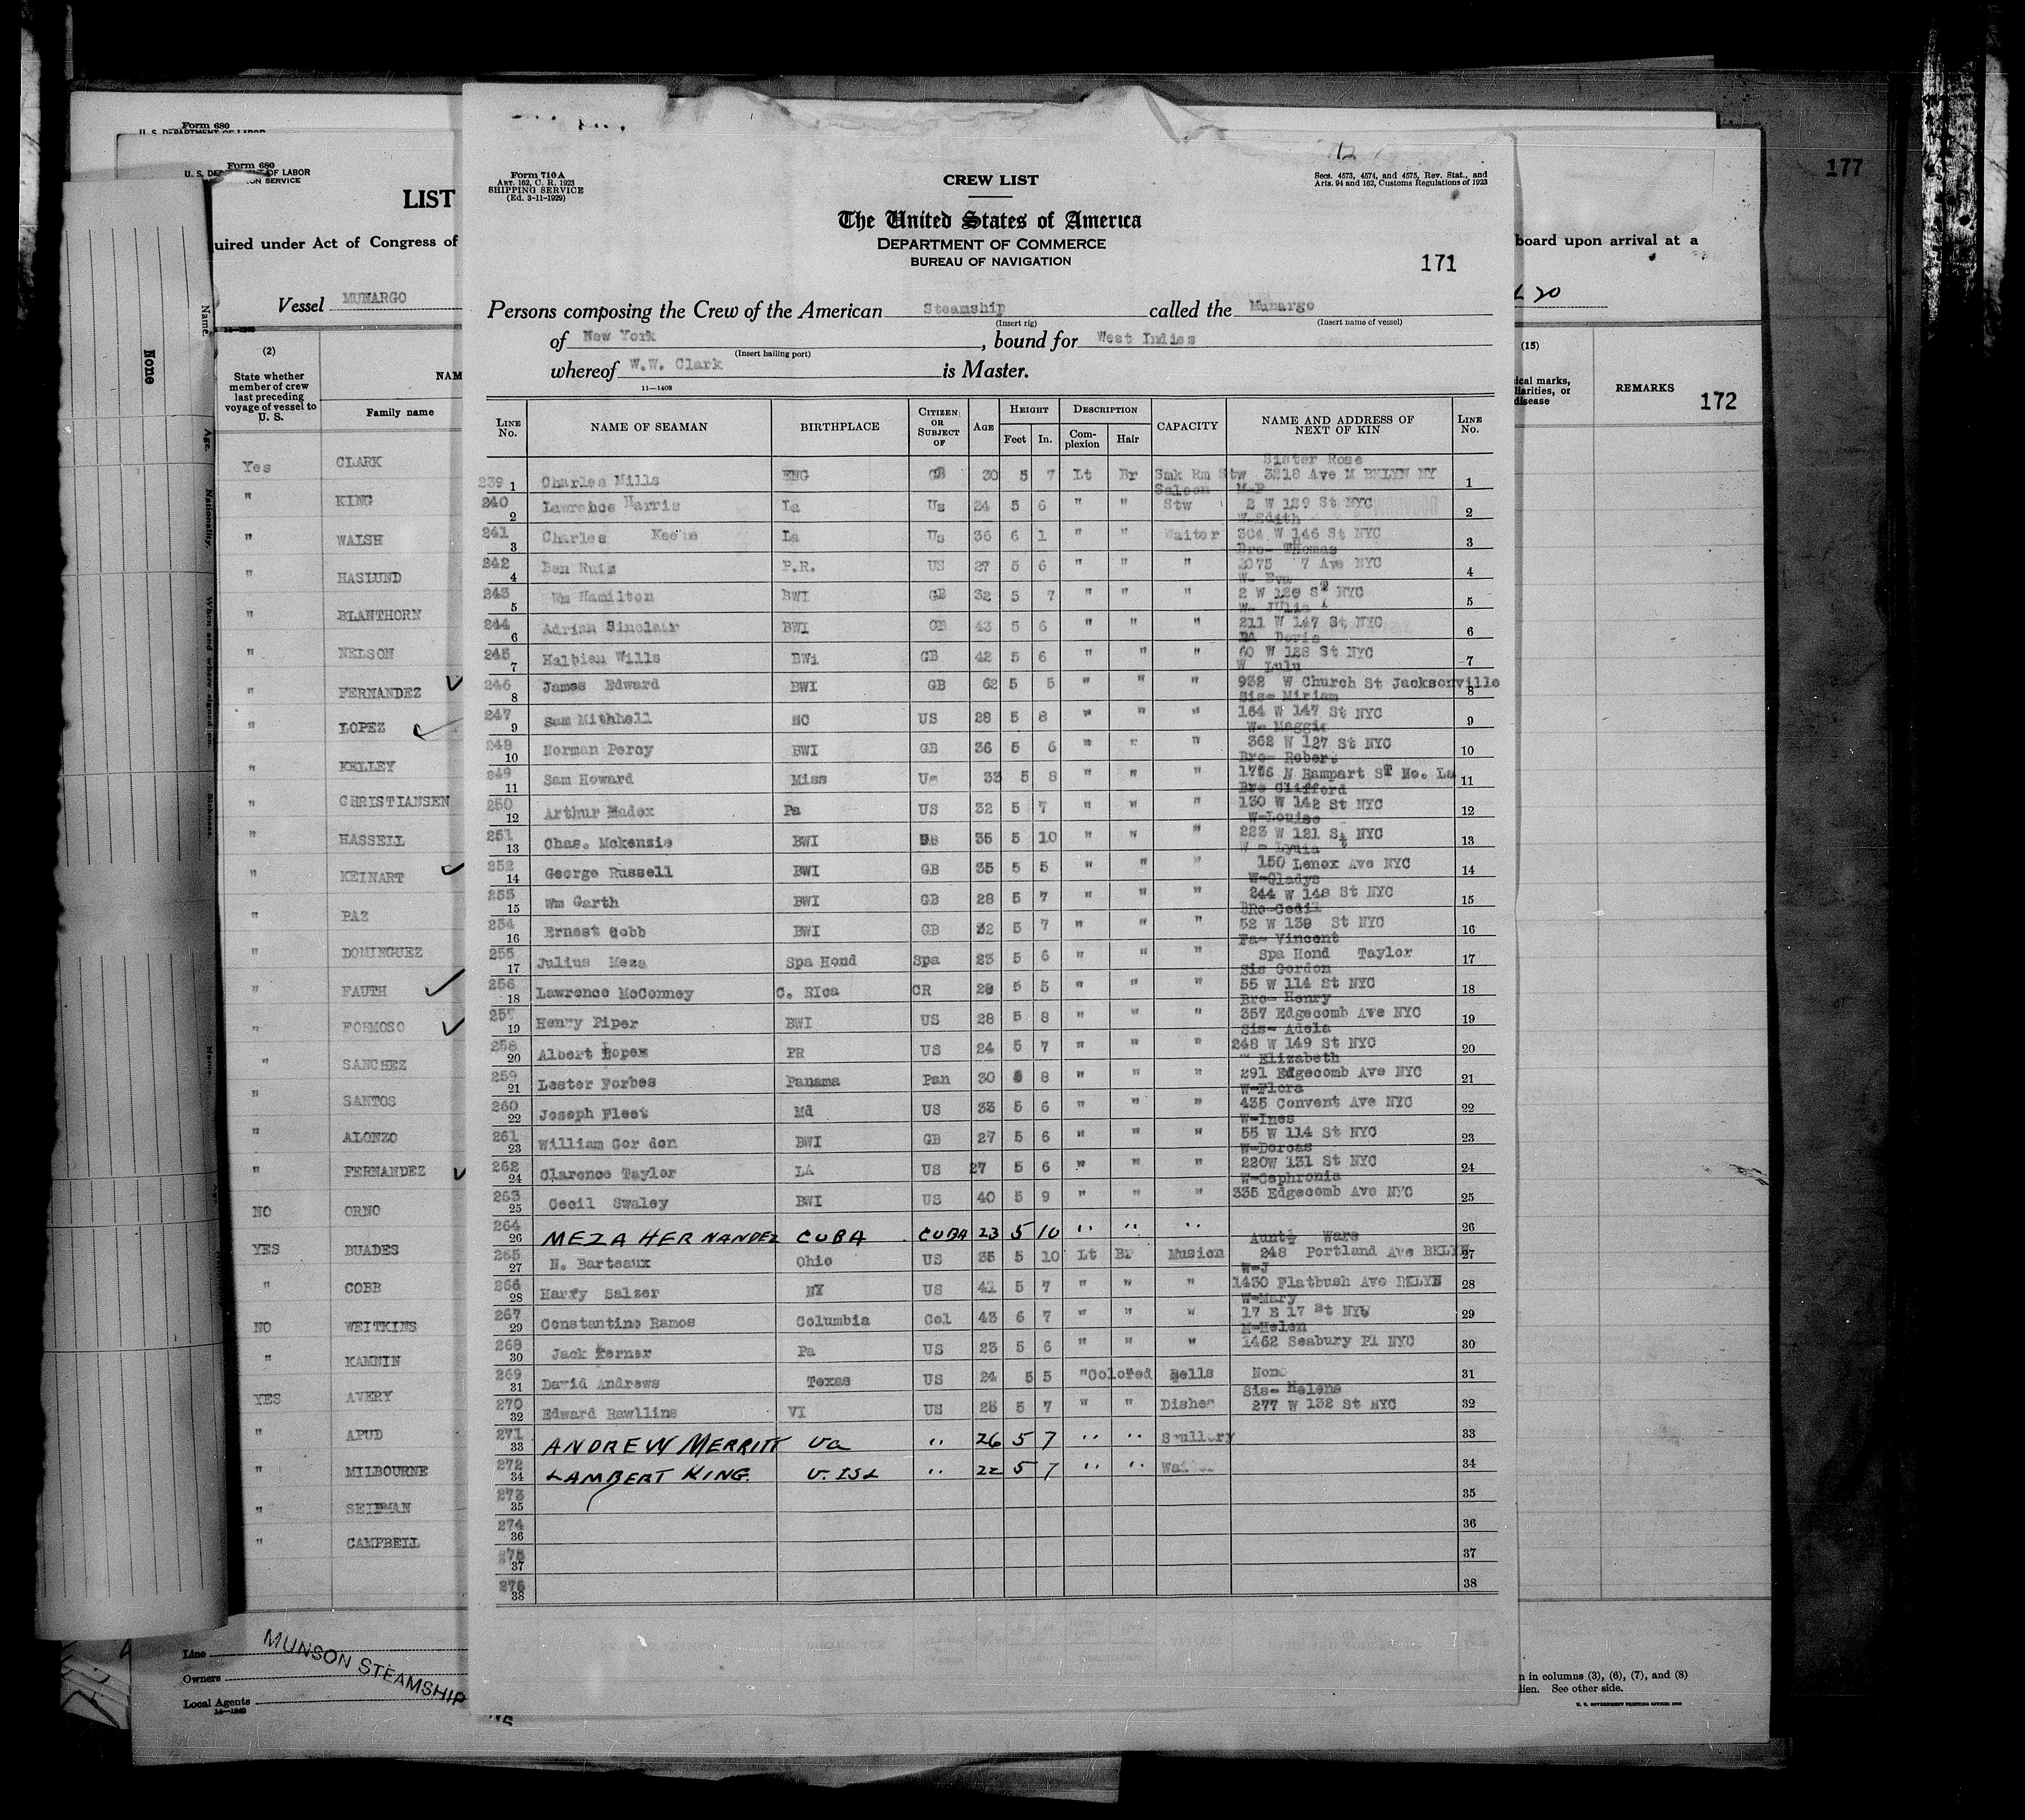 177
Form 680
U. S. DEPARTMENT OF LABOR
Form 680
U. S. DEP OF LABOR
ON SERVICE
LIST
uired under Act of Congress of
board upon arrival at a
Vessel MUNARGO
20
None
(2)
State whether member of crew last preceding voyage of vessel to U. S.
NAM
Family name
Yes CLARK
" KING
" WALSH
" HASLUND
" BLANTHORN
" NELSON
" FERNANDEZ
" LOPEZ
" KELLEY
" CHRISTIANSEN
" HASSELL
" KEINART
" PAZ
" DOMINGUEZ
" FAUTH
" FORMOSO
" SANCHEZ
" SANTOS
" ALONZO
" FERNANDEZ
NO ORNO
YES BUADES
" COBB
NO WEITKINS
" KAMNIN
YES AVERY
" APUD
" MILBOURNE
" SEIDMAN
" CAMPBELL
Line
Owners
Local Agents
MUNSON STEAMSHIP
14—1240
Form 710 A
ART. 162, C. R. 1923
SHIPPING SERVICE
(Ed. 3-11-1929)
CREW LIST
Secs. 4573, 4574, and 4575, Rev. Stat., and
Arts. 94 and 162, Customs Regulations of 1923
The United States of America
DEPARTMENT OF COMMERCE
BUREAU OF NAVIGATION
171
Persons composing the Crew of the American Steamship called the Munargo
(Insert rig) (Insert name of vessel)
of New York, bound for West Indies
(Insert hailing port)
whereof W.W. Clark is Master.
11—1408
LINE No. NAME OF SEAMAN BIRTHPLACE CITIZEN OR SUBJECT OF AGE HEIGHT Feet In. DESCRIPTION Complexion Hair CAPACITY NAME AND ADDRESS OF NEXT OF KIN LINE No.
Sister Rose
239 1 Charles Mills ENG GB 30 5 7 Lt Br Smk Rm Stw 3218 Ave M BKLYN NY 1
Saloon M-P
240 2 Lawrence Harris La Us 24 5 6 " " Stw 2 W 129 St NYC 2
W-Edith
241 3 Charles Keene La Us 36 6 1 " " Waiter 304 W 146 St NYC 3
Bro- Thomas
242 4 Ben Ruiz P.R. US 27 5 6 " " " 2075 7 Ave NYC 4
W- Eva
243 5 Wm Hamilton BWI GB 32 5 7 " " " 2 W 120 ST NYC 5
W- Julia
244 6 Adrian Sinclair BWI GB 43 5 6 " " " 211 W 147 St NYC 6
DA Doris
245 7 Halbien Wills BWi GB 42 5 6 " " " 60 W 128 St NYC 7
W Lulu
246 8 James Edward BWI GB 62 5 5 " " " 932 W Church St Jacksonville 8
Sis- Miriam
247 9 Sam Mithhell NC US 28 5 8 " " " 164 W 147 St NYC 9
W- Maggie
248 10 Norman Percy BWI GB 36 5 6 " " " 362 W 127 St NYC 10
Bro- Robert
249 11 Sam Howard Miss Us 33 5 8 " " " 1756 N Rampart ST No. La 11
Bro Clifford
250 12 Arthur Madox Pa US 32 5 7 " " " 130 W 142 St NYC 12
W-Louise
251 13 Chas. Mckenzie BWI GB 35 5 10 " " " 223 W 121 St NYC 13
W - Lydia
252 14 George Russell BWI GB 35 5 5 " " " 150 Lenox Ave NYC 14
W-Gladys
253 15 Wm Garth BWI GB 28 5 7 " " " 244 W 148 St NYC 15
BRo-Cecil
254 16 Ernest Cobb BWI GB 32 5 7 " " " 52 W 139 St NYC 16
Fa- Vincent
255 17 Julius Meza Spa Hond Spa 23 5 6 " " " Spa Hond Taylor 17
Sis Gordon
256 18 Lawrence McConney C. RIca CR 28 5 5 " " " 55 W 114 St NYC 18
Bro- Henry
257 19 Henry Piper BWI US 28 5 8 " " " 357 Edgecomb Ave NYC 19
Sis- Adela
258 20 Albert Lopez PR US 24 5 7 " " " 248 W 149 St NYC 20
" Elizabeth
259 21 Lester Forbes Panama Pan 30 5 8 " " " 291 Edgecomb Ave NYC 21
W-Flora
260 22 Joseph Fleet Md US 33 5 6 " " " 435 Convent Ave NYC 22
W-Ines
261 23 William Gor don BWI GB 27 5 6 " " " 55 W 114 St NYC 23
W-Dorcas
262 24 Clarence Taylor LA US 27 5 6 " " " 220W 131 St NYC 24
W-Cephronia
263 25 Cecil Swaley BWI US 40 5 9 " " " 335 Edgecomb Ave NYC 25
264 26 MEZA HERNANDEZ CUBA CUBA 23 5 10 " " " 26
Aunt Ware
265 27 N. Barteaux Ohio US 35 5 10 Lt BR Musicn 248 Portland Ave BKLYN 27
W-J
266 28 Harry Salzer NY US 41 5 7 " " " 1430 Flatbush Ave BKLYN 28
W-Mary
267 29 Constantino Ramos Columbia Col 43 6 7 " " " 17 E 17 St NYC 29
M-Helen
268 30 Jack Kerner Pa US 23 5 6 " " " 1462 Seabury Pl NYC 30
269 31 David Andrews Texas US 24 5 5 "Colored Bells None 31
Sis- Helene
270 32 Edward Rawllins VI US 25 5 7 " " Disher 277 W 132 St NYC 32
271 33 ANDREW MERRITT Va " 26 5 7 " " Scullery 33
272 34 LAMBERT KING. V. ISL " 22 5 7 " " 34
273 35 35
274 36 36
275 37 37
276 38 38
(15)
ical marks,
liarities, or
disease
REMARKS
172
n in columns (3), (6), (7), and (8)
lien. See other side.
U. S. GOVERNMENT PRINTING OFFICE: 1930